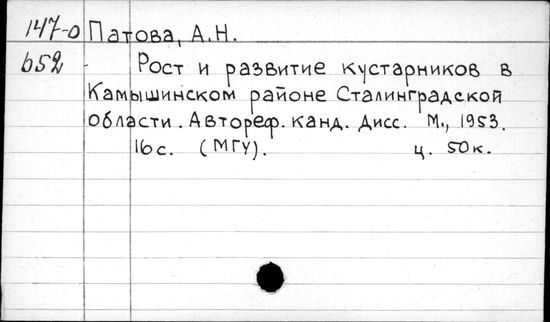 147-0 Патова, А.Н.
652 Рост и развитие кустарников в
Камышинском районе Сталинградской
области. Автореф. канд. дисс. М., 1953.
16 с. (МГУ). ц. 50 к.